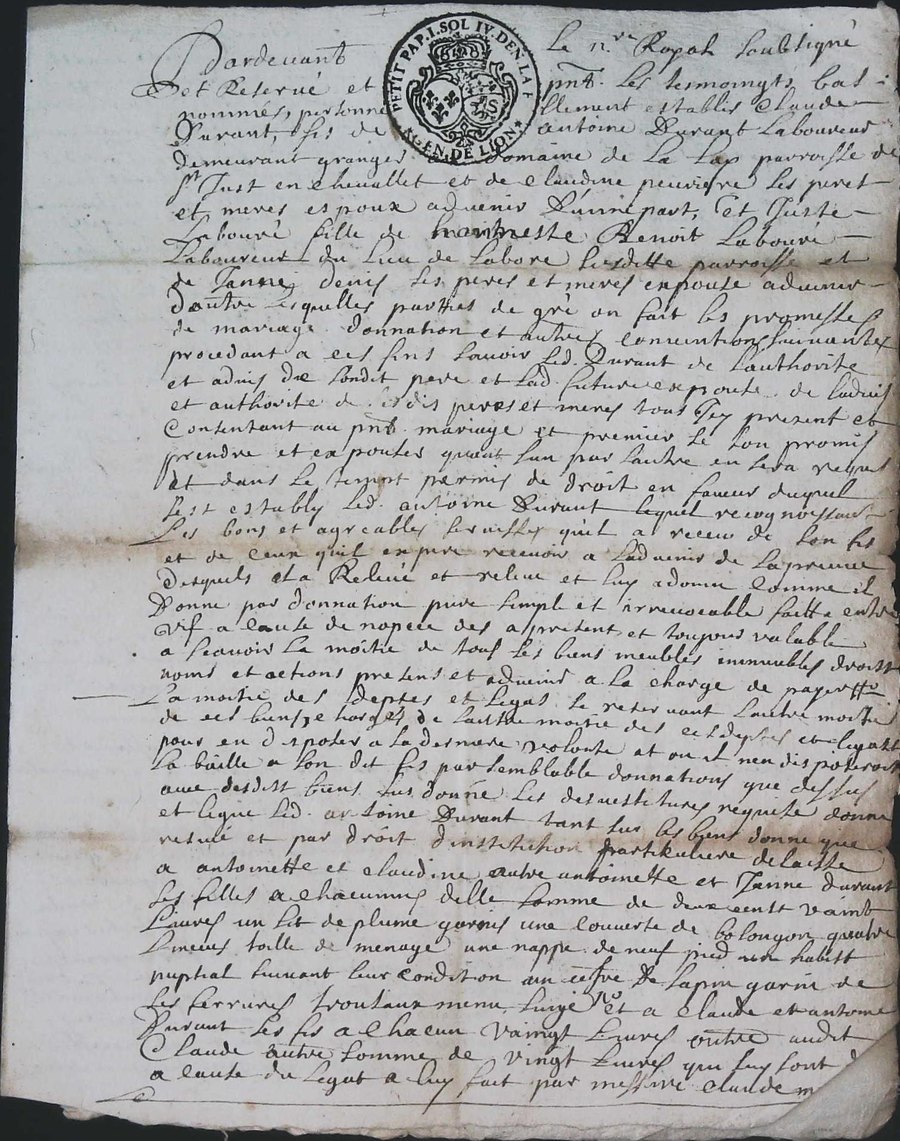 PETIT PAP. I. SOL IV. DEN. LA F.
★ GEN. DE LION ★
Pardevant Le n.re Royal soubsigné
et Reservé et pnt. Les tesmoingts bas
nommés, personnellement establis Claude
Durant, fis de antoine Durant Laboureur
demeurant granges domaine de La Lap parroisse de
St Just en chevallet et de claudine peuriere ses peret
et meres espoux advenir D'unne part, Et Juste
Labouré fille de Benoit Labouré
Laboureur du Lieu de Labore susditte parroisse et
de Janne denis ses peres et meres espouse advenir
d'autre Lesquelles partties de gré on fait les promesses
de mariage donnation et autres conventions suivantes
procedant a ces fins scavoir Led. Durant de Lauthorité
et advis de sondit pere et Lad. future expouse de Ladvis
et authorité de sesdis peres et meres tous Icy present et
Consentant au pnt. mariage et premier se son promis
prendre et expouser quant Lun par Lautre en sera requis
et dans Le tempt permis de droit en faveur duquel
sest estably Led. antoine Durant Lequel recognoissant
Les bons et agreables servisses qu'il a receu de son fis
et de ceux quil expere recevoir a Ladvenir de La preuve
desquels La Relevé et releve et Luy a donné comme il
Donne par donnation pure simple et irrevocable faitte entre
vif a cause de nopces des a present et toujours valable
a scavoir La moitie de tous ses biens meubles immeubles droitt
noms et actions presens et advenir a La charge de payer
La moitie des deptes et Legas se reservant Lautre moitié
de ces biens, charges de Lautre moitie des ces deptes et Legatt
pour en disposer a La dernere volonté et ou il n'en disposeroit
La baille a son dit fis par semblable donnations que dessus
avec desditt biens sus donné Les desvestitures requise donne
et Legue Led. antoine Durant tant sur Les biens donne que
resuvé et par droit d'institution partikuliere delaisse
a antoinette et claudine autre antoinette et Janne durant
ses filles a chacunnes delle somme de deux cent vaint
Livres un Lit de plume garnis une couverte de quatre
Linceus toille de menage une nappe de neuf pied un habitt
nuptial suivant Leur condition un cofre De sapin garni de
ses ferrures trousaux menu Linge et a claude et antoine
Durant ses fis a chacun vaingt Livres outre audit
Claude autre somme de vingt Livres qui Luy sont
a cause du Legat a Luy fait par messire claude